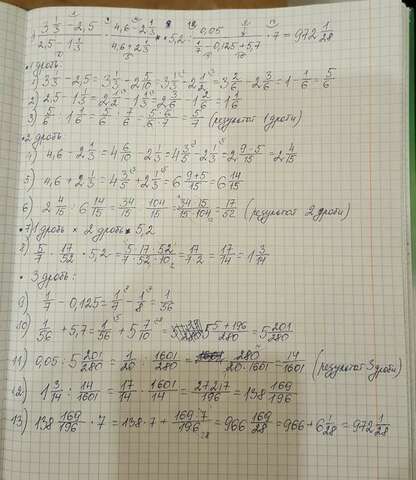 (3 1/3 − 2,5)/(2,5 − 1 1/3) · (4,6 − 2 1/3)/(4,6 + 2 1/3) · 5,2 : 0,05/(1/7 − 0,125 + 5,7) · 7 = 972 1/28
•1 дробь:
1) 3 1/3 − 2,5 = 3 1/3 − 2 5/10 = 3 1/3 − 2 1/2 = 3 2/6 − 2 3/6 = 1 − 1/6 = 5/6
2) 2,5 − 1 1/3 = 2 1/2 − 1 1/3 = 2 3/6 − 1 2/6 = 1 1/6
3) 5/6 : 1 1/6 = 5/6 : 7/6 = 5·6/6·7 = 5/7 (результат 1 дроби)
•2 дробь
4) 4,6 − 2 1/3 = 4 6/10 − 2 1/3 = 4 3/5 − 2 1/3 = 2 9−5/15 = 2 4/15
5) 4,6 + 2 1/3 = 4 3/5 + 2 1/3 = 6 9+5/15 = 6 14/15
6) 2 4/15 : 6 14/15 = 34/15 : 104/15 = 34·15/15·104 = 17/52 (результат 2 дроби)
•7) 1 дробь × 2 дробь × 5,2
8) 5/7 · 17/52 · 5,2 = 5·17·52/7·52·10 = 17/7·2 = 17/14 = 1 3/14
• 3 дробь:
9) 1/7 − 0,125 = 1/7 − 1/8 = 1/56
10) 1/56 + 5,7 = 1/56 + 5 7/10 = 5 5+196/280 = 5 201/280
11) 0,05 : 5 201/280 = 1/20 : 1601/280 = 280/20·1601 = 14/1601 (результат 3 дроби)
12) 1 3/14 : 14/1601 = 17/14 · 1601/14 = 27217/196 = 138 169/196
13) 138 169/196 · 7 = 138·7 + 169·7/196 = 966 169/28 = 966 + 6 1/28 = 972 1/28